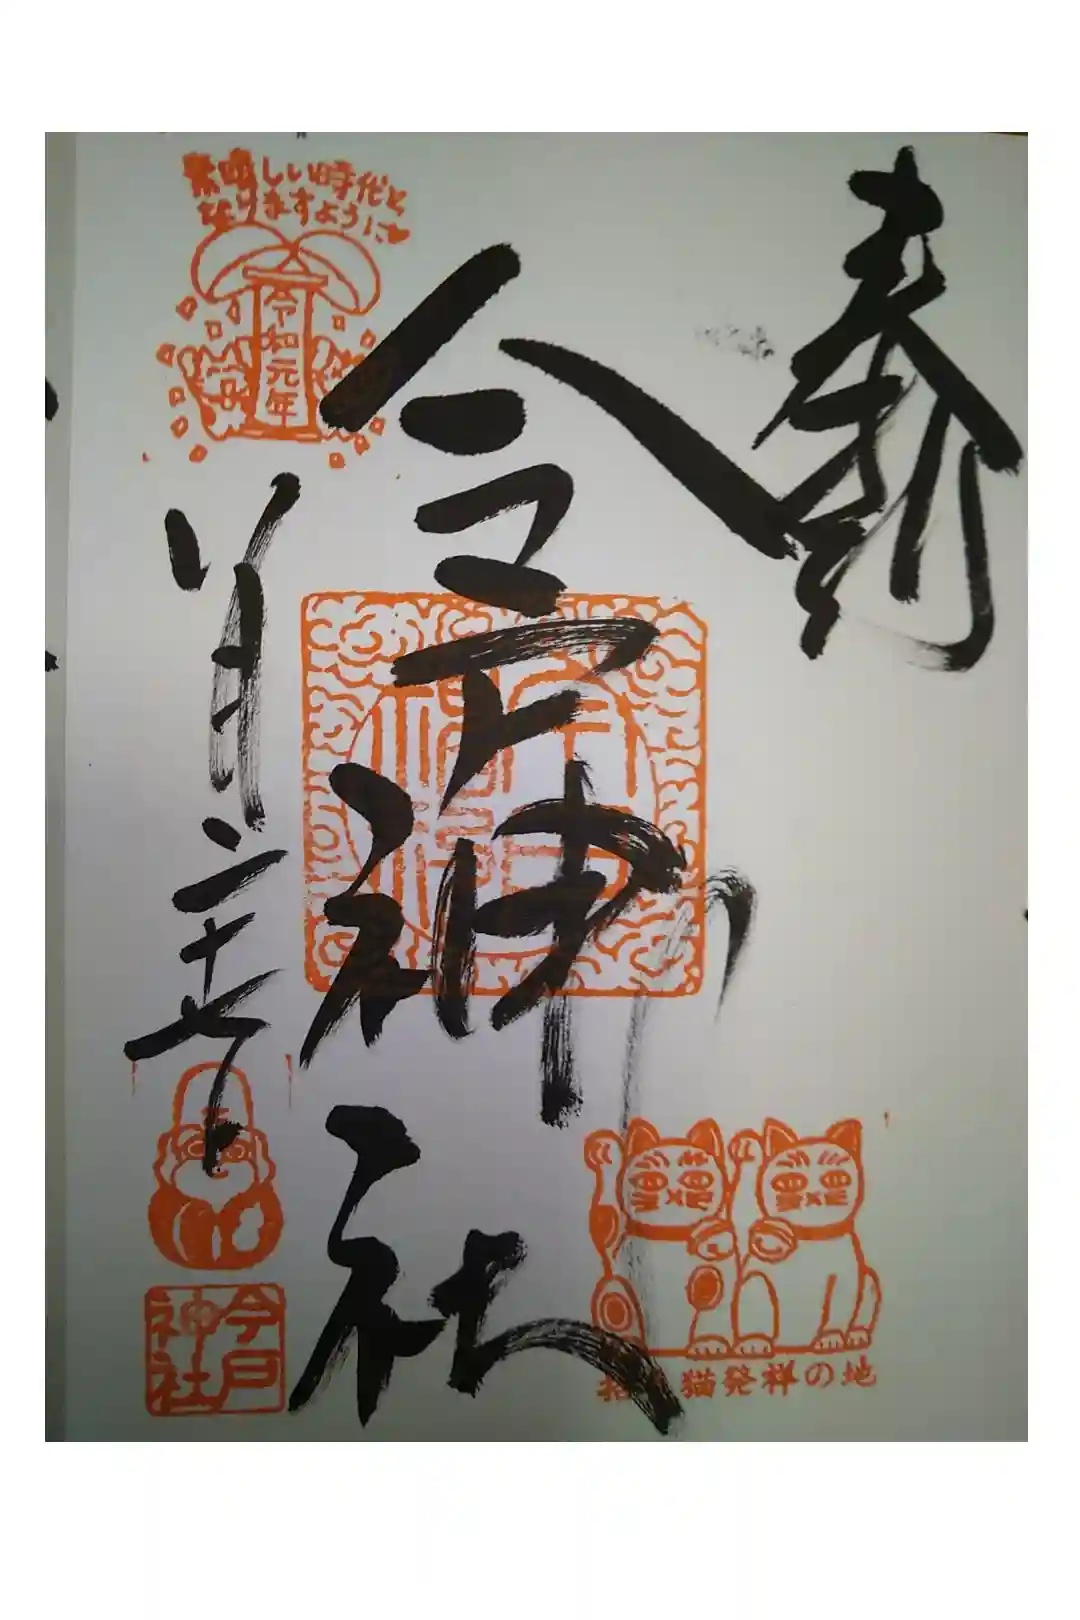 奉拝
今戸神社
素晴しい時代と
なりますように♥
令和元年
八月二十七日
今戸
神社
招き猫発祥の地